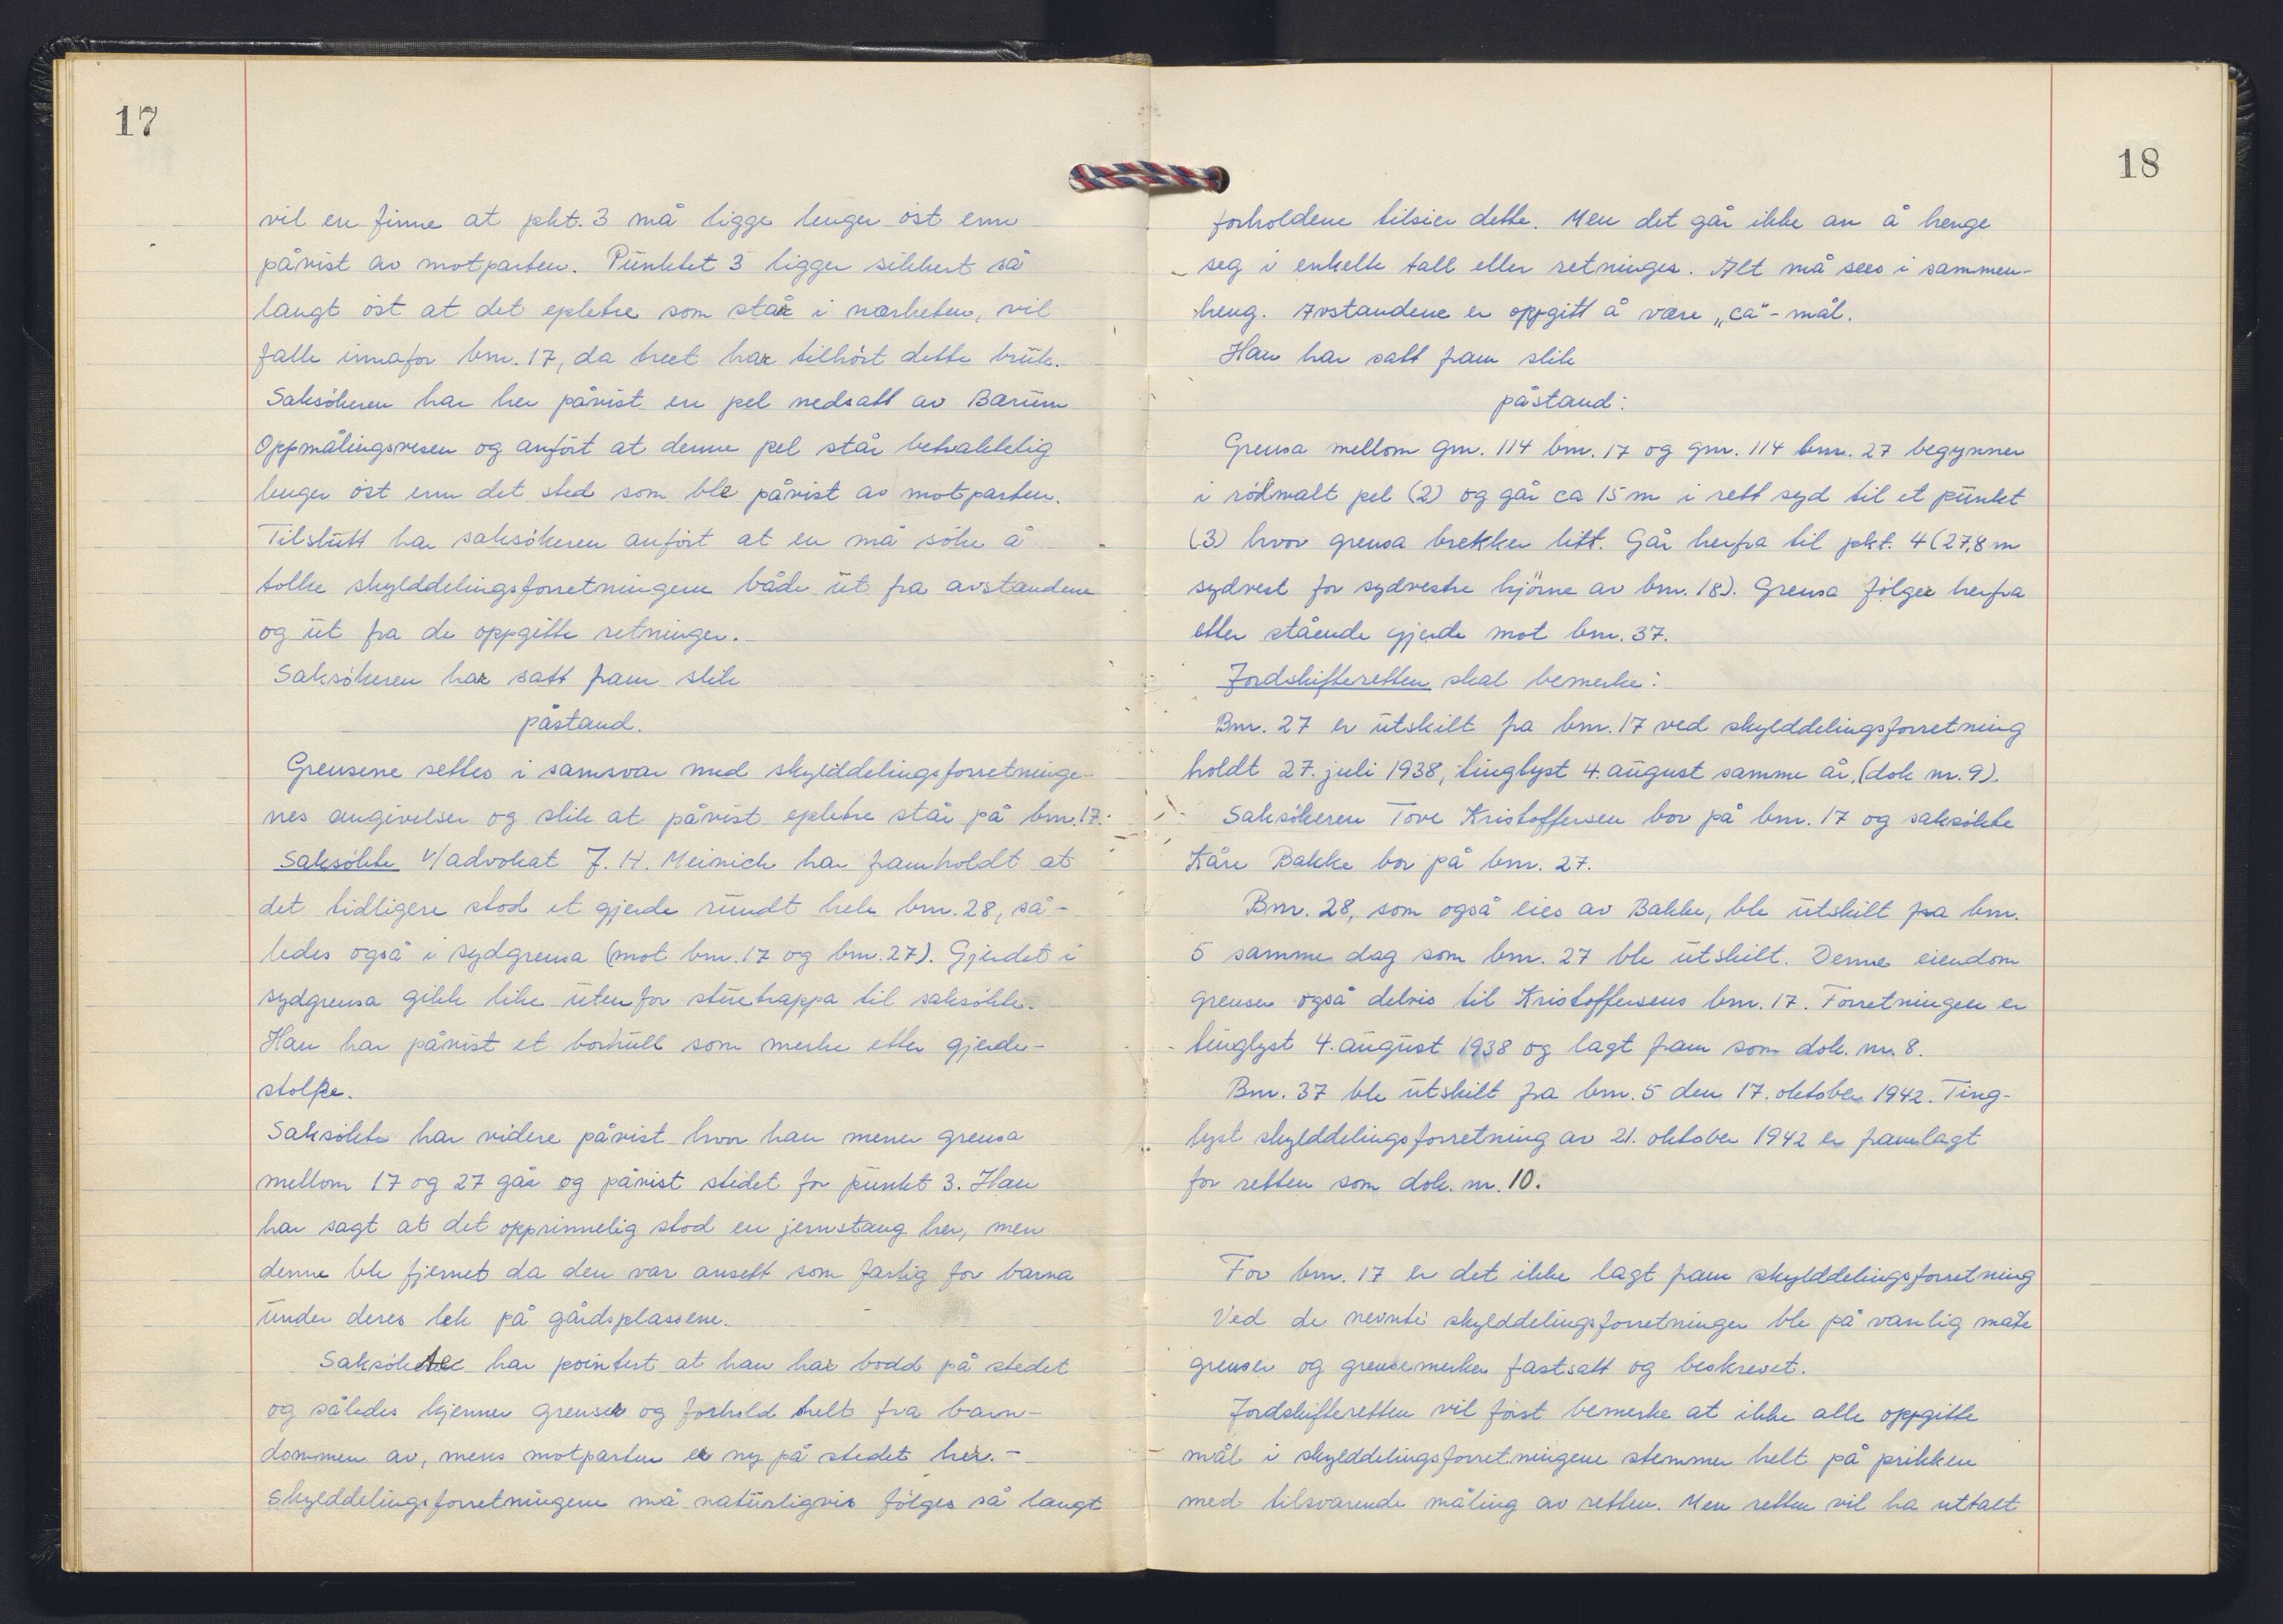 17
vil en finne at pkt. 3 må ligge lenger öst enn
påvist av motparten. Punktet 3 ligger sikkert så
langt öst at det epletre som står i nærheten, vil
falle innafor bnr. 17, da treet har tilhört dette bruk.
Saksökeren har her påvist en pel nedsatt av Bærum
Oppmålingsvesen og anfört at denne pel står betraktelig
lenger öst enn det sted som ble påvist av motparten.
Tilslutt har saksökeren anfört at en må söke å
tolke skylddelingsforretningene både ut fra avstandene
og ut fra de oppgitte retninger.
Saksökeren har satt fram slik
påstand.
Grensene settes i samsvar med skylddelingsforretninge-
nes angivelser og slik at påvist epletre står på bnr. 17.
Saksökte v/advokat J. H. Meinich har framholdt at
det tidligere stod et gjerde rundt hele bnr. 28, så-
ledes også i sydgrensa (mot bnr. 17 og bnr. 27). Gjerdet i
sydgrensa gikk like utenfor stuetrappa til saksökte.
Han har påvist et borhull som merke etter gjerde-
stolpe.
Saksökte har videre påvist hvor han mener grensa
mellom 17 og 27 går og påvist stedet for punkt 3. Han
har sagt at det opprinnelig stod en jernstang her, men
denne ble fjernet da den var ansett som farlig for barna
under deres lek på gårdsplassene.
Saksökte har pointert at han har bodd på stedet
og således kjenner grenser og forhold helt fra barn-
dommen av, mens motparten er ny på stedet her. -
Skylddelingsforretningene må naturligvis fölges så langt
18
forholdene tilsier dette. Men det går ikke an å henge
seg i enkelte tall eller retninger. Alt må sees i sammen-
heng. Avstandene er oppgitt å være „ca"-mål.
Han har satt fram slik
påstand:
Grensa mellom gnr. 114 bnr. 17 og gnr. 114 bnr. 27 begynner
i rödmalt pel (2) og går ca 15 m i rett syd til et punkt
(3) hvor grensa brekker litt. Går herfra til pkt. 4 (27,8 m
sydvest for sydvestre hjörne av bnr. 18). Grensa fölger herfra
etter stående gjerde mot bnr. 37.
Jordskifteretten skal bemerke:
Bnr. 27 er utskilt fra bnr. 17 ved skylddelingsforretning
holdt 27. juli 1938, tinglyst 4. august samme år, (dok nr. 9).
Saksökeren Tove Kristoffersen bor på bnr. 17 og saksökte
Kåre Bakke bor på bnr. 27.
Bnr. 28, som også eies av Bakke, ble utskilt fra bnr.
5 samme dag som bnr. 27 ble utskilt. Denne eiendom
grenser også delvis til Kristoffersens bnr. 17. Forretningen er
tinglyst 4. august 1938 og lagt fram som dok. nr. 8.
Bnr. 37 ble utskilt fra bnr. 5 den 17. oktober 1942. Ting-
lyst skylddelingsforretning av 21. oktober 1942 er framlagt
for retten som dok. nr. 10.
For bnr. 17 er det ikke lagt fram skylddelingsforretning
Ved de nevnte skylddelingsforretninger ble på vanlig måte
grenser og grensemerker fastsatt og beskrevet.
Jordskifteretten vil först bemerke at ikke alle oppgitte
mål i skylddelingsforretningene stemmer helt på prikken
med tilsvarende måling av retten. Men retten vil ha uttalt